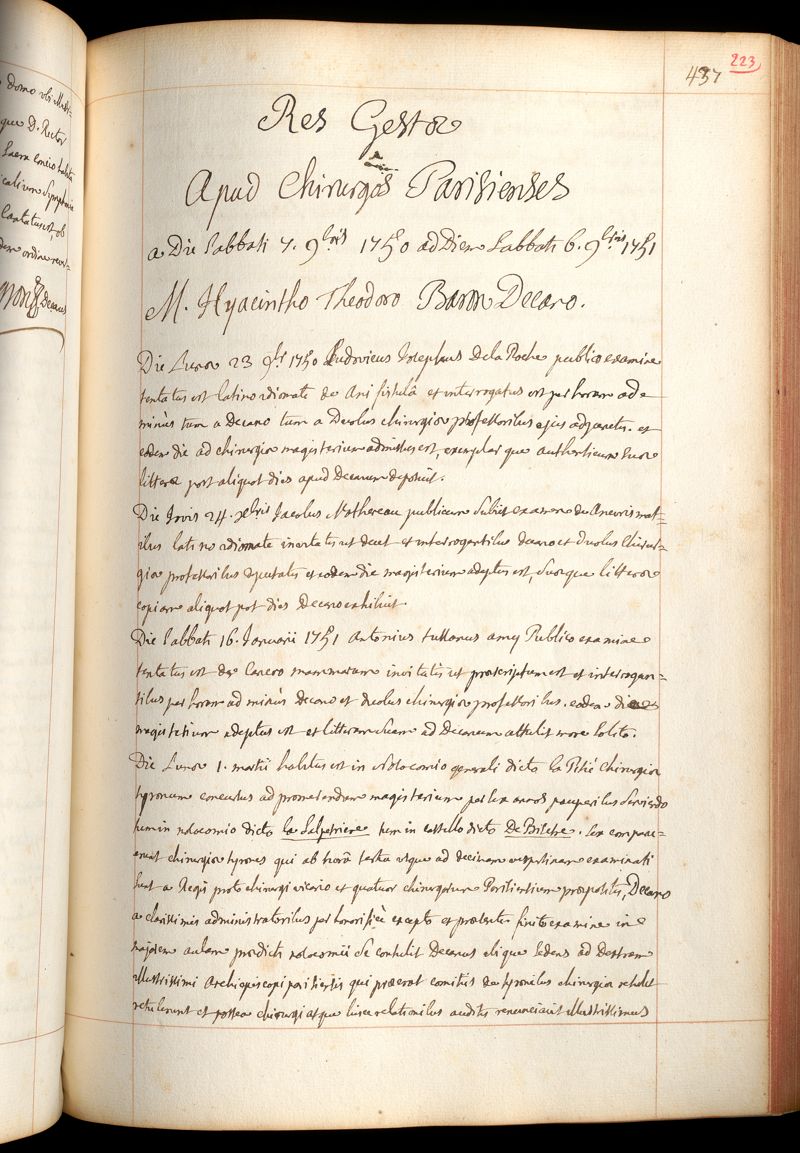 domo ubi Medi=
que D. Rector
Sacra concio habita
Symphonia
Cantatus est, ob
dem ordine rever=
Decanus
223
437
Res Gestæ
Apud Chirurgos Parisienses
a Die Sabbati 7. 9bris 1750 ad Diem Sabbati 6. 9bris 1751
M. Hyacintho Theodoro Baron Decano.
Die Lunæ 23 9bris 1750 Ludovicus Josephus De la Roche publico examine
tentatus est latino idiomate de Ani fistulâ et interrogatus est per horam ad
minus tum a Decano tum a Duobus chirurgiæ professoribus ejus adjunctis. et
eadem die ad chirurgiæ magisterium admissus est, exemplar que authenticum suæ
litteræ post aliquot dies apud Decanum deposuit.
Die Jovis 24. Xbris Jacobus Mothereau publicum subiit examen de Aneurismat=
ibus latino idiomate invitatis ut decet et interrogantibus decano et duobus Chirur=
giæ professoribus deputatis et eadem die magisterium adeptus est, suæque litteræ
copiam aliquot post dies Decano exhibuit.
Die Sabbati 16. Januarii 1751 Antonius tussanus amy Publico examine
tentatus est de Cancro mammarum invitatis ut præscriptum est et interrogan=
tibus per horam ad minus decano et duobus chirurgiæ professoribus. eadem die
magisterium adeptus est et litteram suam ad Decanum attulit more solito.
Die Lunæ 1. martii habitus est in Nosocomio generali dicto la Pitié chirurgiæ
tyronum concursus ad promerendum magisterium per sex annos pauperibus serviendo
tum in nosocomio dicto la Salpetriere tum in castello dicto De Bicetre. sex compar=
erunt chirurgiæ tyrones qui ab horâ tertia usque ad decimam vespertinam examinati
sunt a Regis proto chirurgi vicario et quatuor chirurgorum Parisiensium præpositis, Decano
a clarissimis administratoribus per honorificè excepto et præsente. finito examine in
majorem aulam prædicti nosocomii se contulit Decanus ibique sedens ad Dextram
illustrissimi Archiepiscopi parisiensis qui præerat comitiis de tyronibus chirurgiæ
retulerunt et postea chirurgi atque hisce relationibus auditis renunciavit illustrissimus